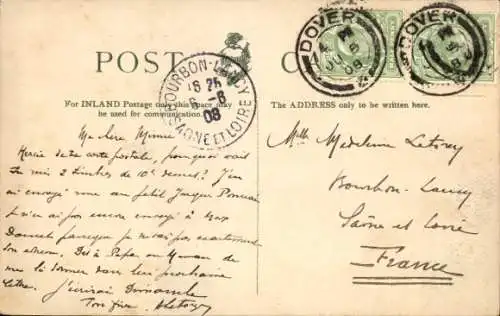 POST C
DOVER
DOVER
08
BOURBON-LANCY
6 25
6 -8
08
SAONE ET LOIRE
For INLAND Postage only this space may
be used for communication.
The ADDRESS only to be written here.
Ma chère Mimie
Merci de ta carte postale, pourquoi vait
tu mis 2 timbres de 10c dessus? J'en
ai envoyé une au petit Jacques
je n'ai pas encore envoyé à Max
parceque je ne sais pas exactement
son adresse. Dis à Papa ou Maman de
me la donner dans leur prochaine
lettre. J'écrirai Dimanche
Ton frère
Melle Madeleine Letorey
Bourbon-Lancy
Saône et Loire
France